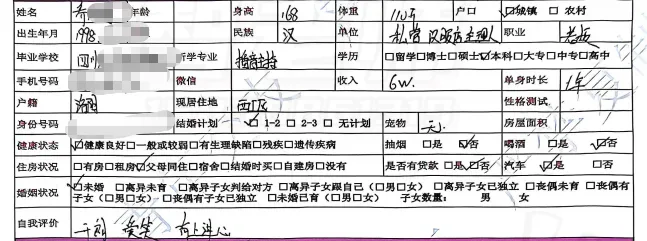 姓名 乔 年龄 身高 168 体重 110斤 户口 ☑城镇 □农村
出生年月 1998. 民族 汉 单位 私营 汉服店主理人 职业 老板
毕业学校 四川 所学专业 播音主持 学历 □留学□博士□硕士☑本科□大专□中专□高中
手机号码 微信 收入 6w. 单身时长 1年
户籍 现居住地 性格测试
身份号码 结婚计划 ☑1-2 □2-3 □无计划 宠物 无 房屋面积
健康状态 ☑健康良好□一般或较弱□有生理缺陷□残疾□遗传疾病 抽烟 □是 ☑否 喝酒 □是 ☑否
住房状况 □有房□租房☑父母同住□宿舍□结婚时买□自建房□没有 是否有贷款 □是☑否 汽车 ☑是 □否
婚姻状况 ☑未婚 □离异未育 □离异子女判给对方 □离异子女跟自己(□男□女) □离异子女已独立 □丧偶未育 □丧偶有
子女(□男□女) □丧偶有子女已独立 □未婚已育(□男□女) 子女数量: 男 女
自我评价 开朗 爱笑 有上进心